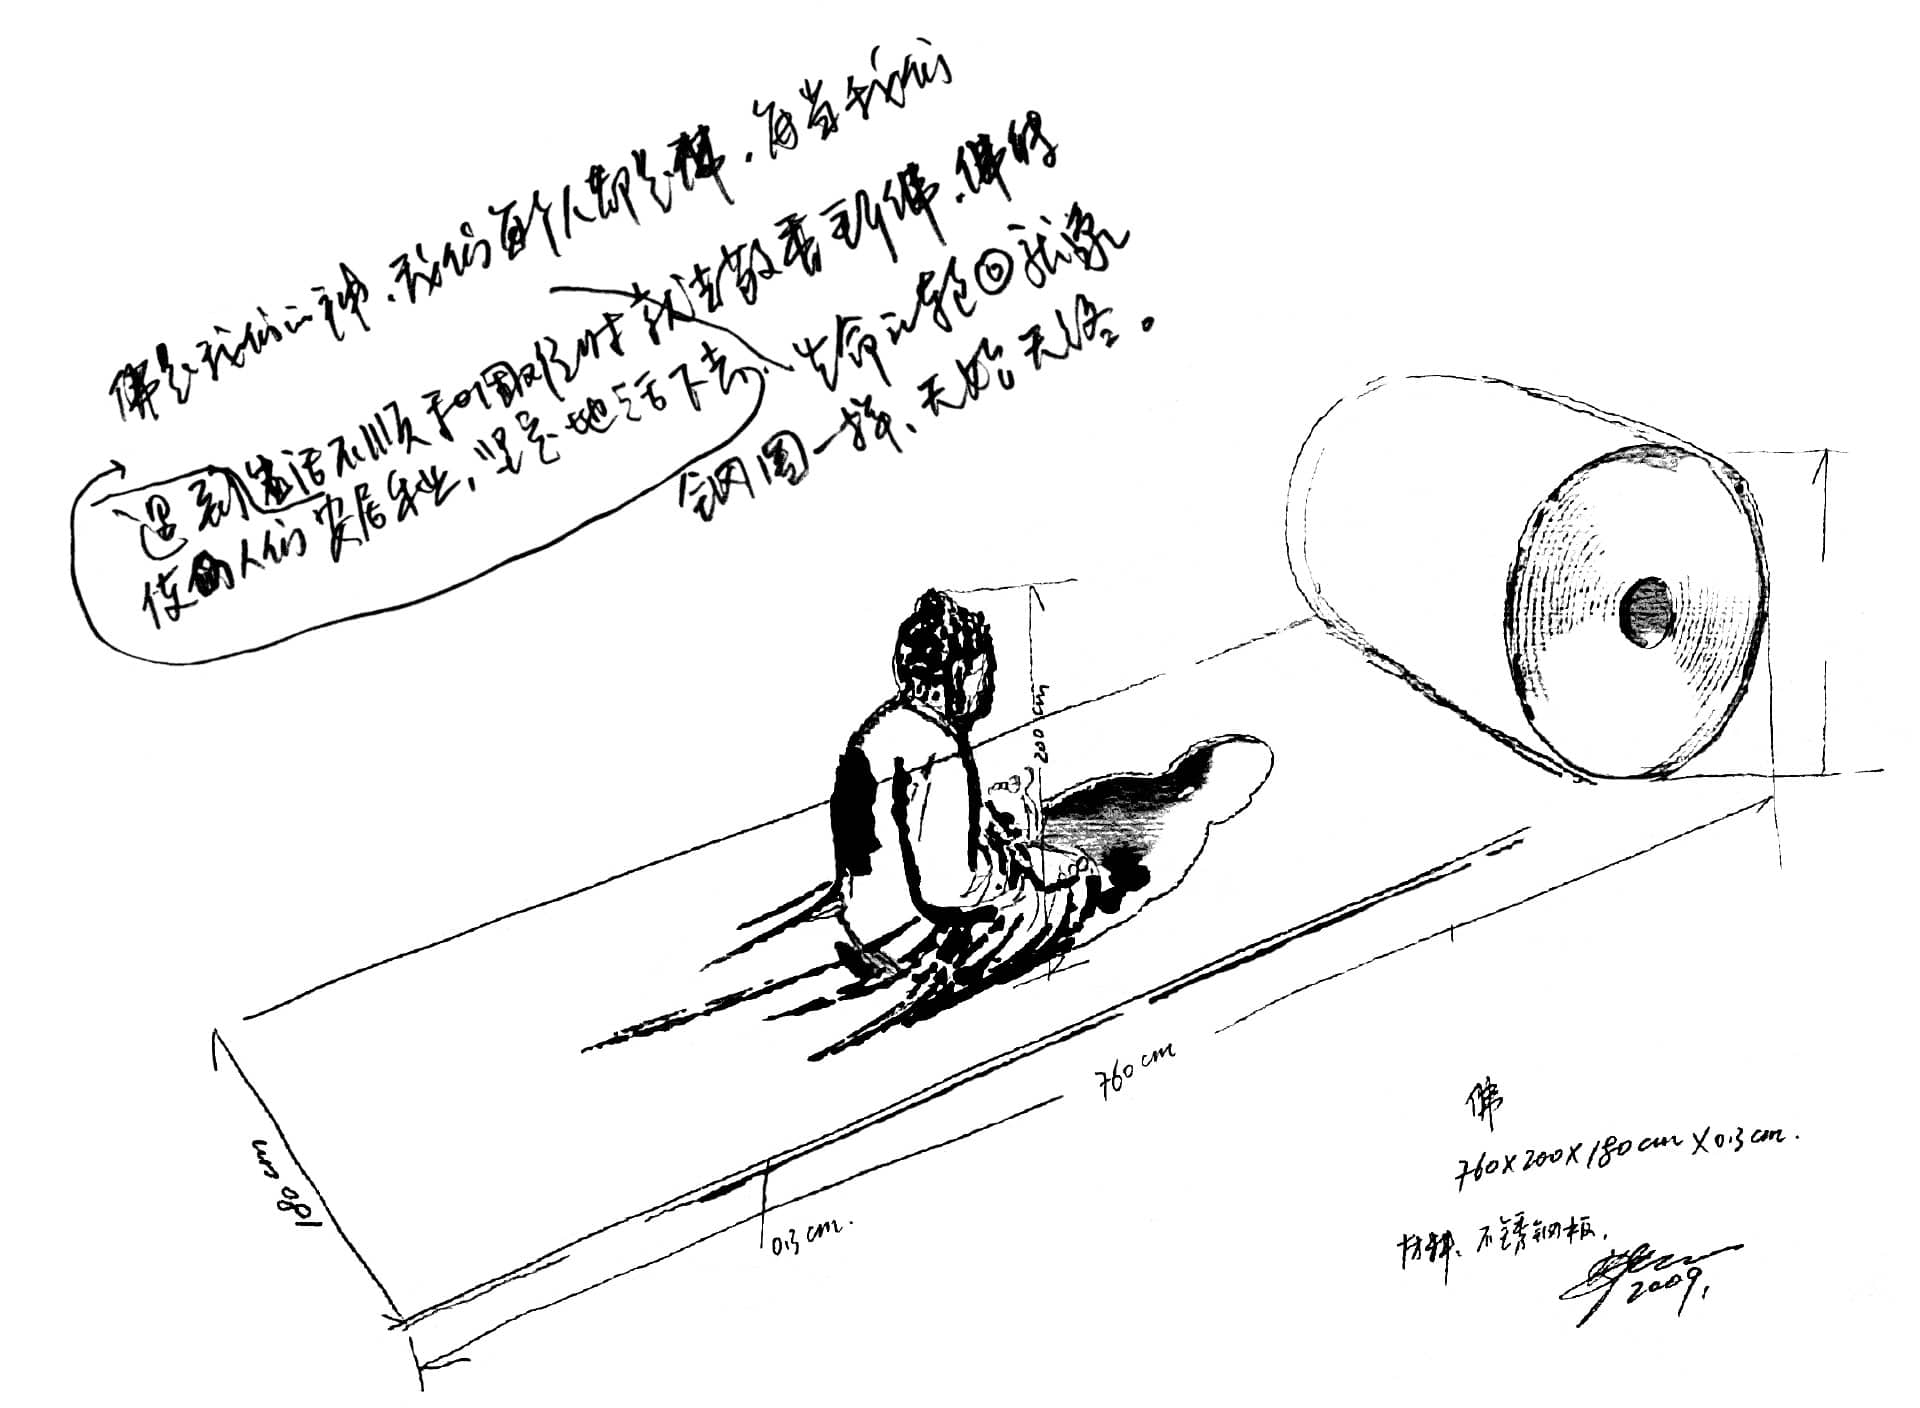 佛是我们的神.我们每个人都是佛.每当我们
遇到生活不顺和困难时就去敬香拜佛.佛的
使人们安居乐业,坚定地活下去.生命的轮回就像
钢圈一样、无始无终。
200cm
760cm
180cm
0.3cm.
佛
760X200X180cmX0.3cm.
材料、不锈钢板.
2009.